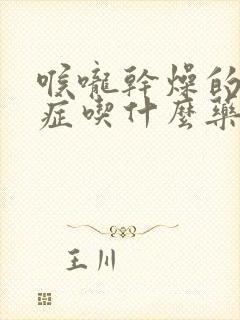 喉嚨幹燥的
症喫什麼藥
王川